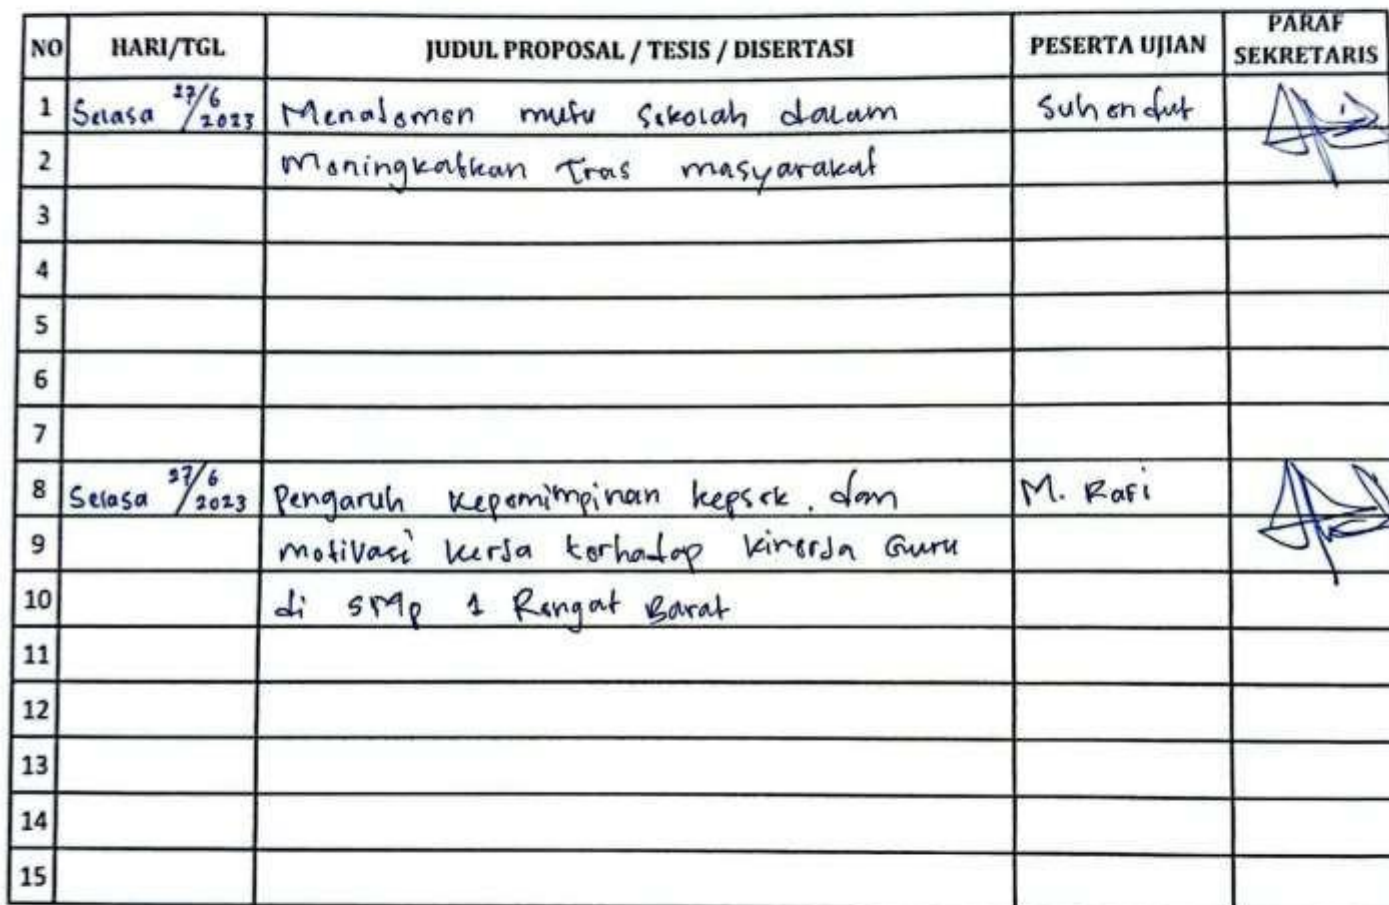 NO HARI/TGL JUDUL PROPOSAL / TESIS / DISERTASI PESERTA UJIAN PARAF SEKRETARIS
1 Selasa 27/6 2023 Menalomen mutu Sekolah dalam Suhendut
2 Moningkatkan Tras masyarakat
3
4
5
6
7
8 Selasa 27/6 2023 Pengaruh kepemimpinan kepsek. dan M. Rafi
9 motivasi kerja terhadap kinerja Guru
10 di SMP 1 Rengat Barat
11
12
13
14
15